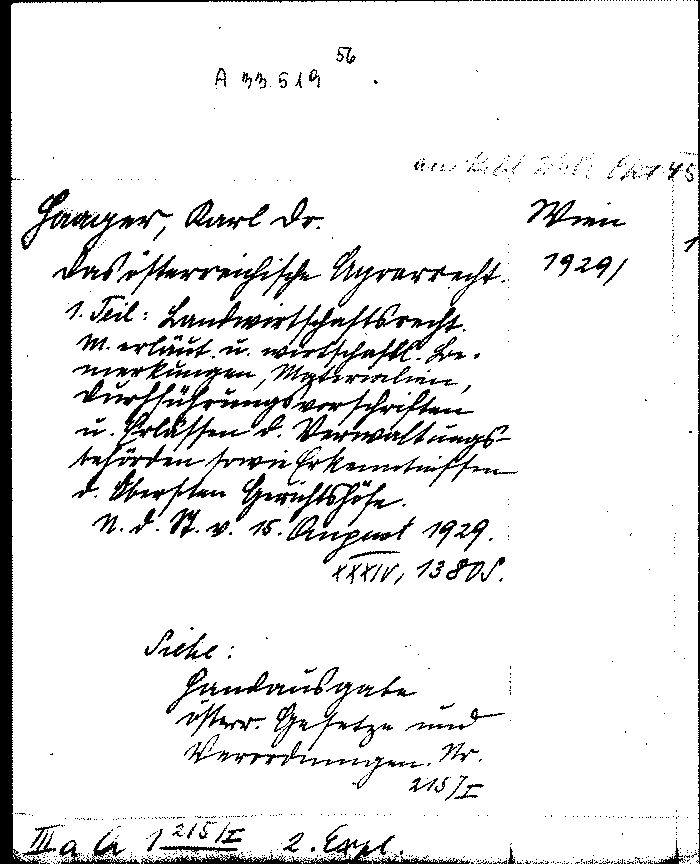 56
A 33.519
Haager, Karl Dr.
Wien
das österreichische Agrarrecht.
1929/
1
1. Teil: Landwirtschaftsrecht.
M. erläut. u. wirtschaftl. Be-
merkungen, Materialien,
Durchführungsvorschriften
u. Erlässen d. Verwaltungs-
behörden sowie Erkenntnissen
d. Obersten Gerichtshöfe.
N. d. St. v. 15. August 1929.
XXXIV, 1380S.
Siehe:
Handausgabe
österr. Gesetze und
Verordnungen. Nr.
215/I
III a 1 215/I 2. Expl.